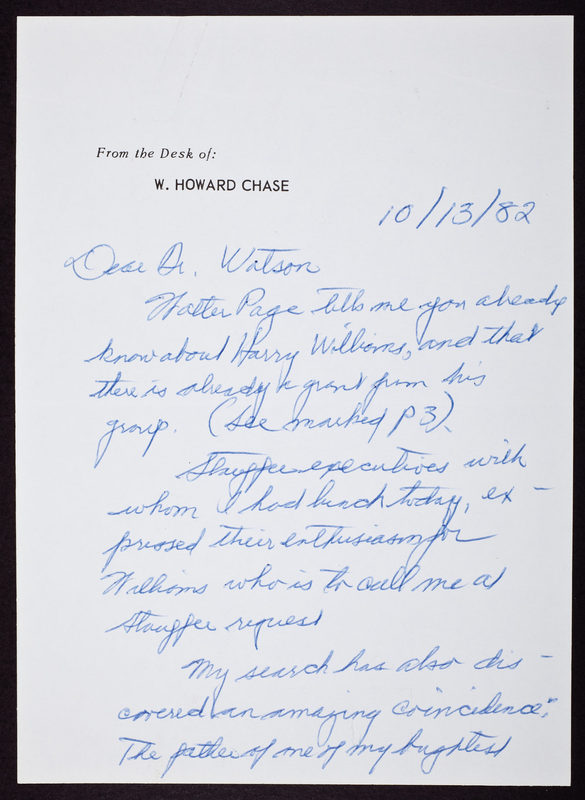 From the Desk of:
W. HOWARD CHASE
10/13/82
Dear Dr. Watson
Walter Page tells me you already
know about Harry Williams, and that
there is already a grant from his
group. (See marked p 3).
Stauffer executives with
whom I had lunch today, ex-
pressed their enthusiasm for
Williams who is to call me at
Stauffer request
My search has also dis-
covered an amazing coincidence:
The father of one of my brightest